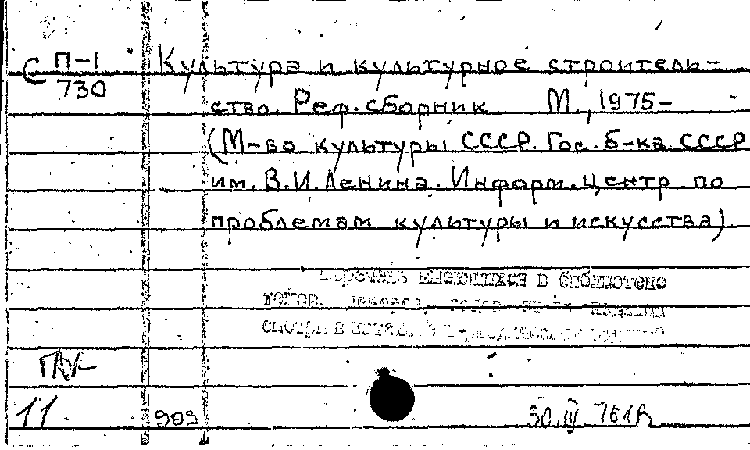 С П-1 Культура и культурное строитель-
730 ство. Реф. сборник М., 1975-
(М-во культуры СССР. Гос. б-ка СССР
им. В.И.Ленина. Информ. центр по
проблемам культуры и искусства).
имеющихся в библиотеке
11 909